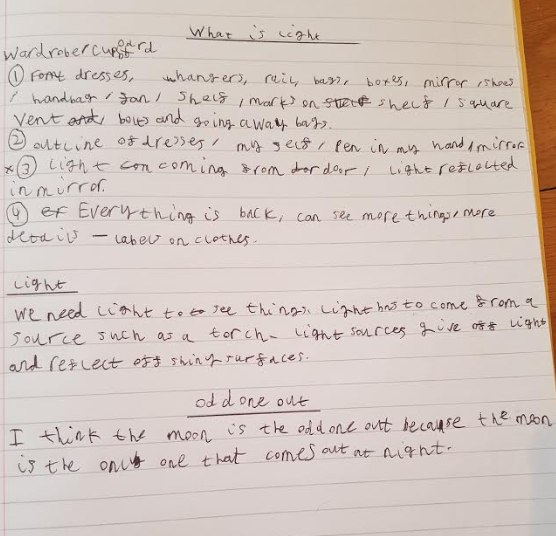 What is light
Wardrober cupboard
① dresses, hangers, rail, bags, boxes, mirror, shoes
, handbag, fan, shelf, marks on shelf, square
vent and, boxes and going away bags.
② outline of dresses, my self, pen in my hand, mirror
x ③ Light coming from door, Light reflected
in mirror.
④ Everything is back, can see more things, more
details - labels on clothes.
Light
We need light to see things. Light has to come from a
source such as a torch. Light sources give off light
and reflect off shiny surfaces.
odd one out
I think the moon is the odd one out because the moon
is the only one that comes out at night.